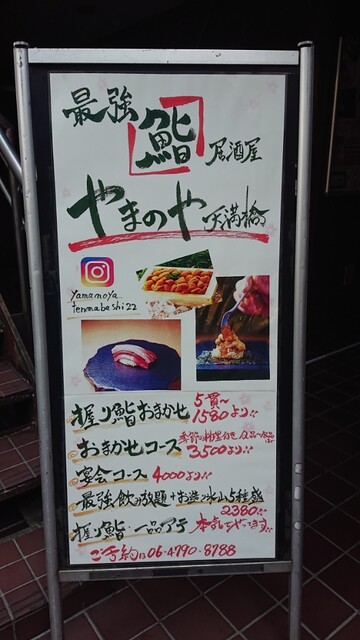 最強
鮨 居酒屋
やまのや 天満橋
yamanoya
tenmabashi22
握り鮨おまかせ 5貫〜
1580より!!
おまかせコース 季節の料理付き
3500より!!
宴会コース 4000より!!
最強飲み放題+お造り氷山5種盛
2380!!
握り鮨・一品アテ 本気でやってます!!
ご予約は06-4790-8788